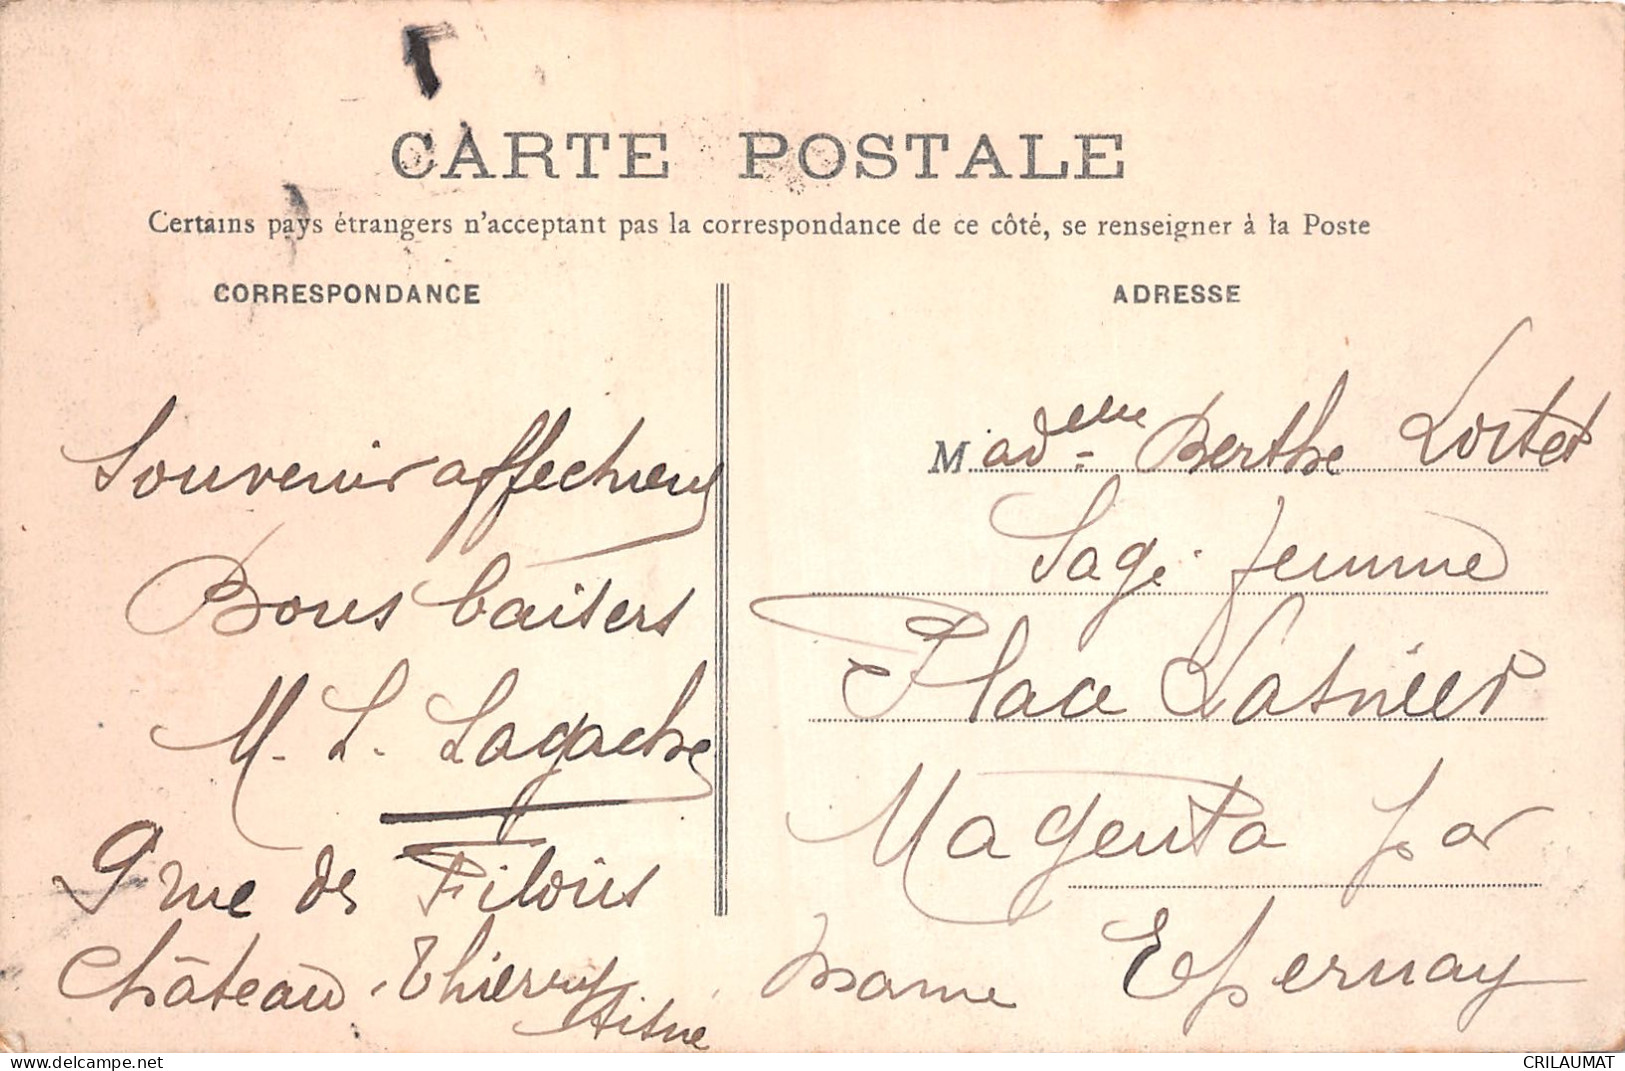 CARTE POSTALE
Certains pays étrangers n'acceptant pas la correspondance de ce côté, se renseigner à la Poste
CORRESPONDANCE
Souvenir affectueux
Bons baisers
M. L. Lagache
9 rue de Filoirs
Château-Thierry
Aisne
ADRESSE
Madelle Berthe Lortet
Sage femme
Place Lasnier
Magenta par
Epernay
Marne
CRILAUMAT